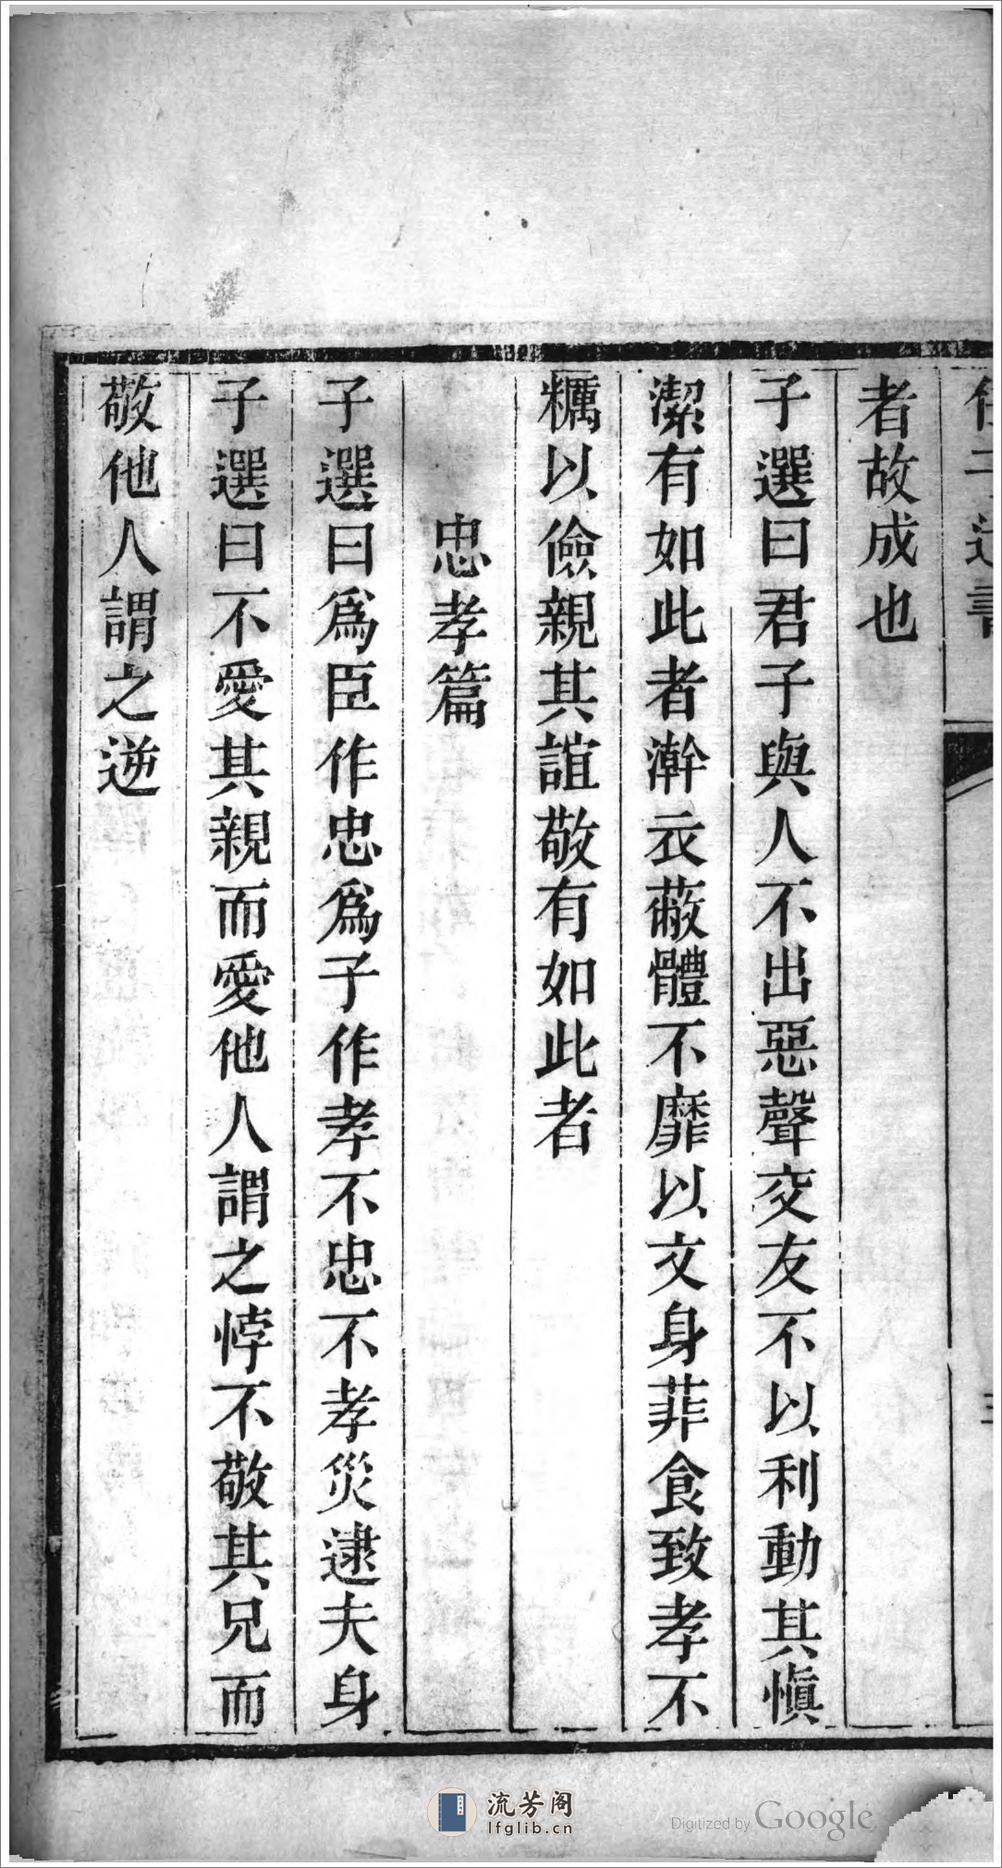 者故成也
子選曰君子與人不出惡聲交友不以利動其愼
潔有如此者澣衣蔽體不靡以文身菲食致孝不
糲以儉親其誼敬有如此者
忠孝篇
子選曰爲臣作忠爲子作孝不忠不孝災逮夫身
子選曰不愛其親而愛他人謂之悖不敬其兄而
敬他人謂之逆
流芳阁
lfglib.cn
Digitized by Google